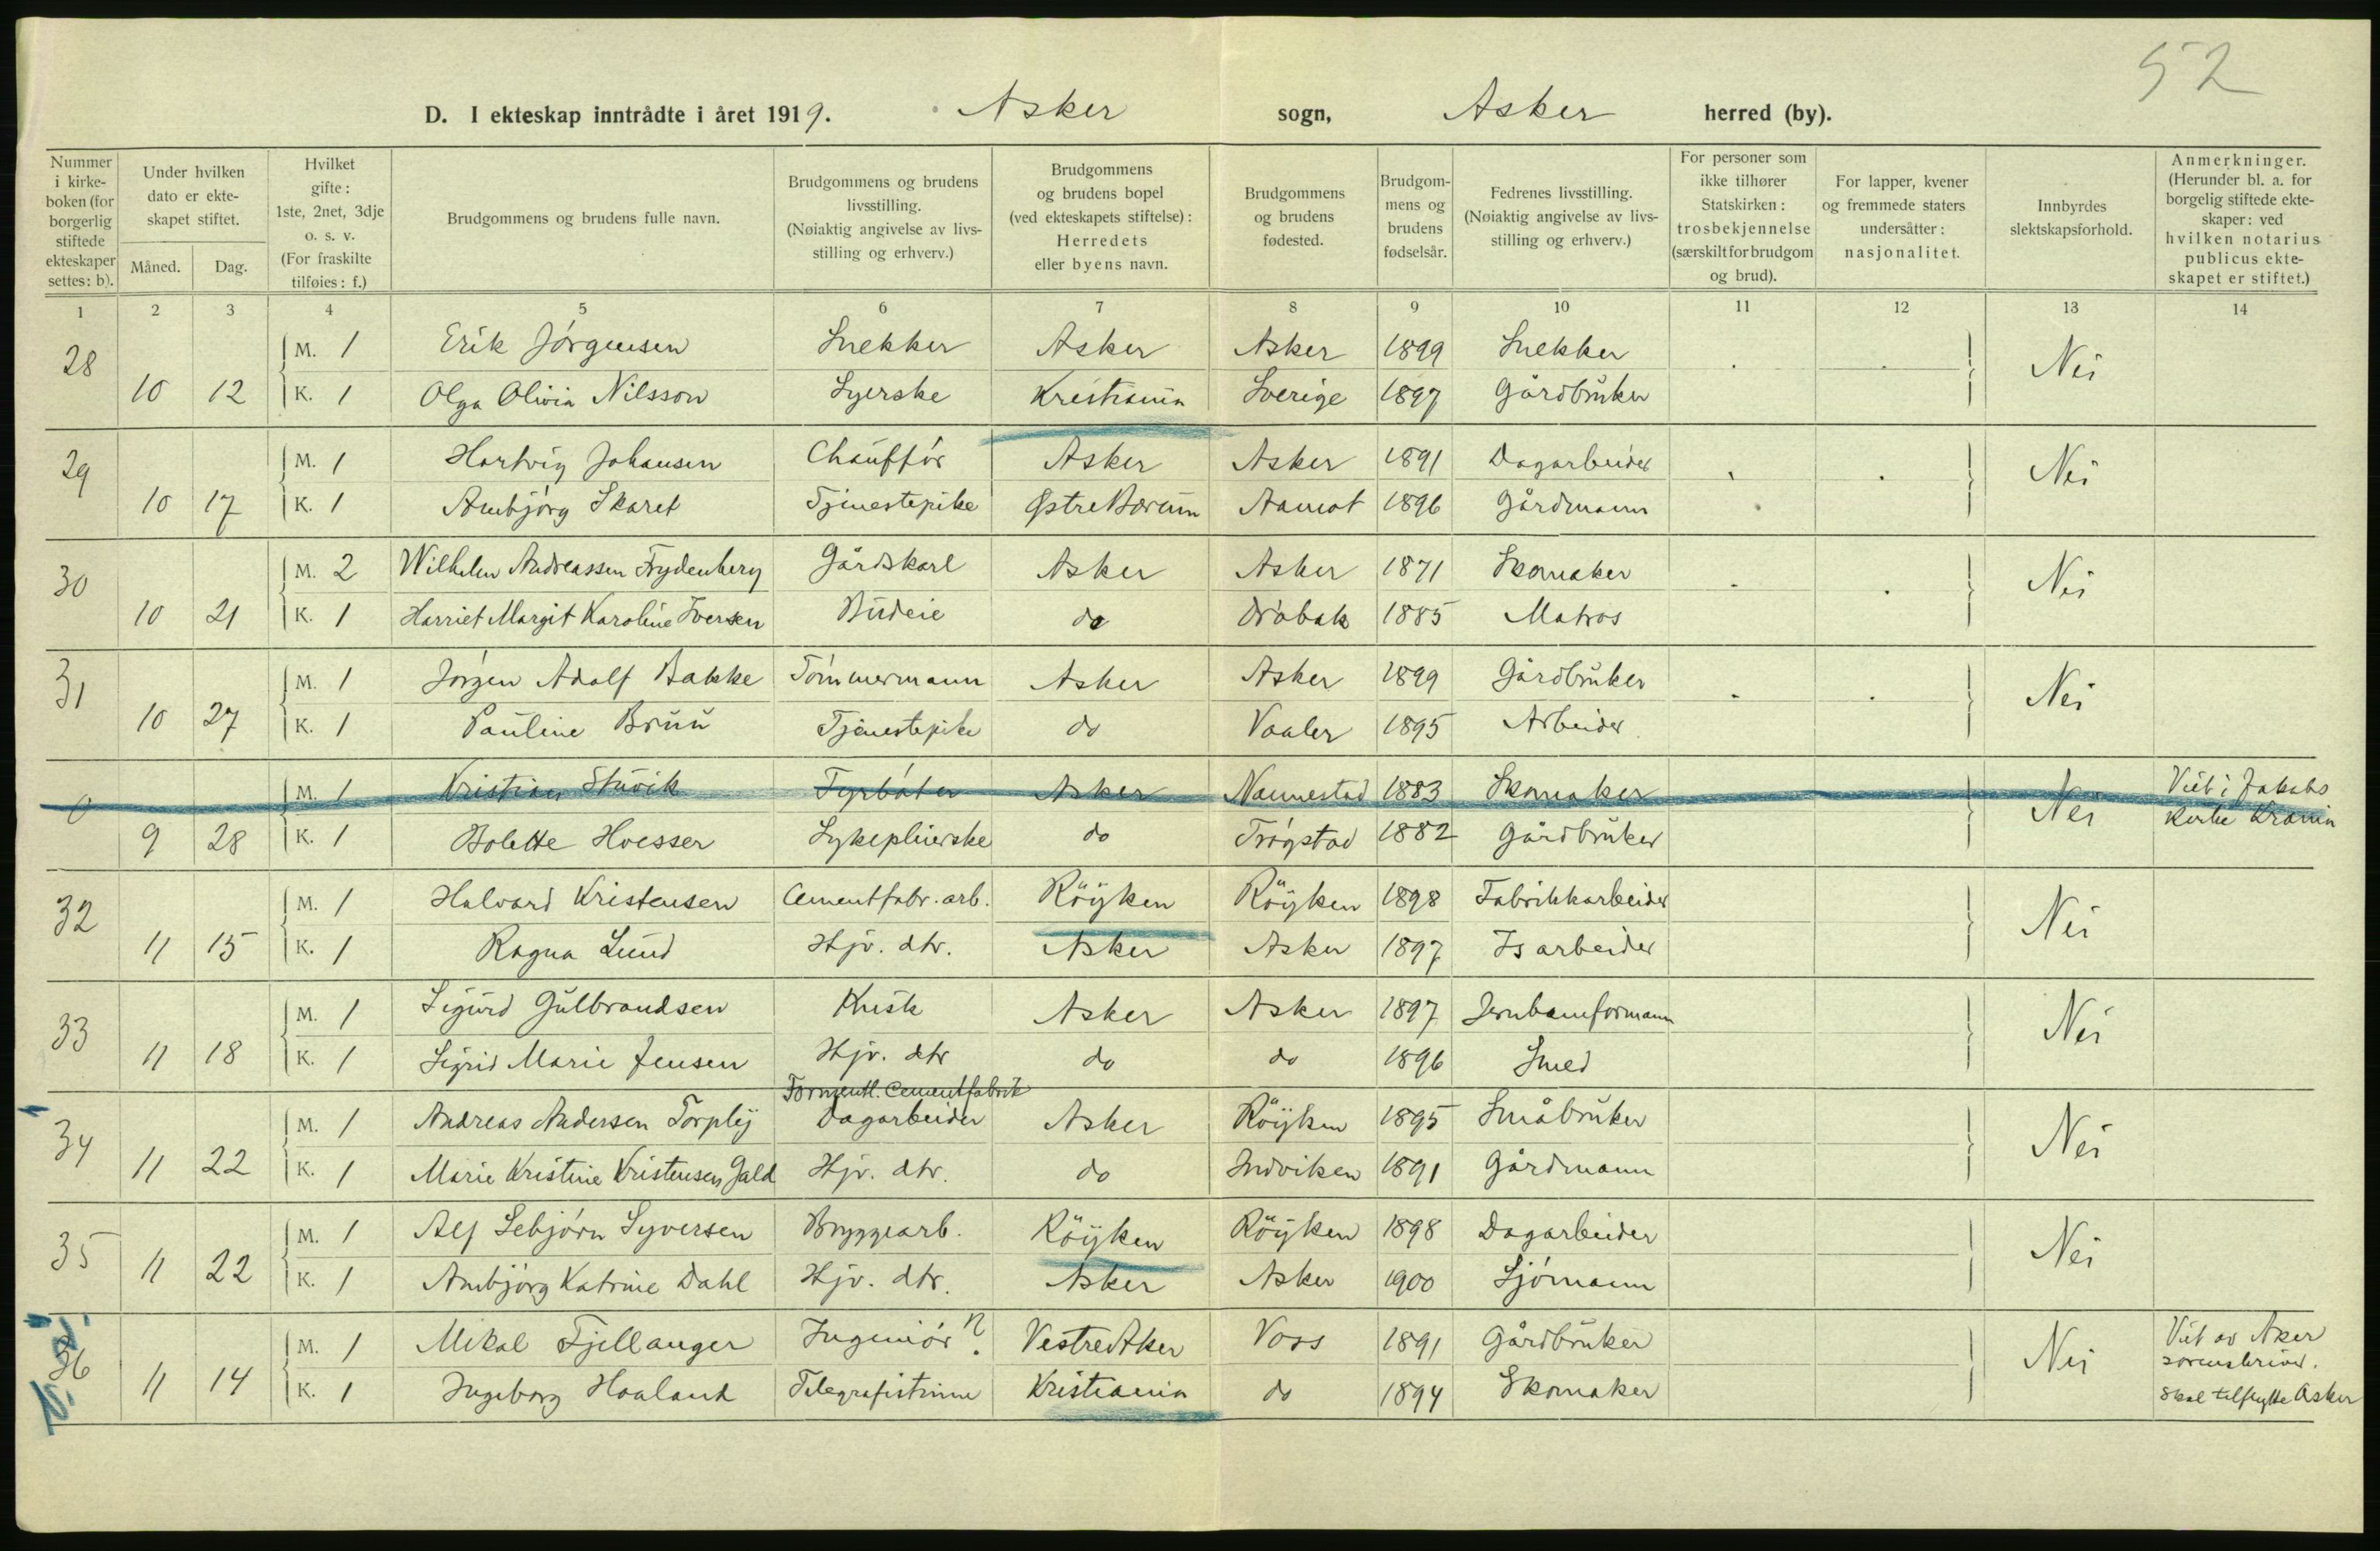 52
D. I ekteskap inntrådte i året 1919. Asker sogn, Asker herred (by).
Nummer i kirkeboken (for borgerlig stiftede ekteskaper settes: b).
Under hvilken dato er ekteskapet stiftet.
Måned. Dag.
Hvilket gifte: 1ste, 2net, 3dje o. s. v. (For fraskilte tilføies: f.)
Brudgommens og brudens fulle navn.
Brudgommens og brudens livsstilling. (Nøiaktig angivelse av livsstilling og erhverv.)
Brudgommens og brudens bopel (ved ekteskapets stiftelse): Herredets eller byens navn.
Brudgommens og brudens fødested.
Brudgommens og brudens fødselsår.
Fedrenes livsstilling. (Nøiaktig angivelse av livsstilling og erhverv.)
For personer som ikke tilhører Statskirken: trosbekjennelse (særskilt for brudgom og brud).
For lapper, kvener og fremmede staters undersåtter: nasjonalitet.
Innbyrdes slektskapsforhold.
Anmerkninger. (Herunder bl. a. for borgelig stiftede ekteskaper: ved hvilken notarius publicus ekteskapet er stiftet.)
1 2 3 4 5 6 7 8 9 10 11 12 13 14
28 M. 1 Erik Jörgensen Snekker Asker Asker 1899 Snekker Nei
10 12 K. 1 Olga Olivia Nilsson Syerske Kristiania Sverige 1897 Gårdbruker
29 M. 1 Hartvig Johansen Chauffór Asker Asker 1891 Dagarbeider Nei
10 17 K. 1 Ambjörg Skaret Tjenestepike Østre Bærum Aamot 1896 Gårdmann
30 M. 2 Wilhelm Andreassen Frydenberg Gårdskarl Asker Asker 1871 Skomaker Nei
10 21 K. 1 Harriet Margit Karoline Iversen Budeie do Dröbak 1885 Matros
31 M. 1 Jörgen Adolf Bakke Tömmermann Asker Asker 1899 Gårdbruker Nei
10 27 K. 1 Pauline Bruu Tjenestepike do Vaaler 1895 Arbeider
0 M. 1 Kristian Stuvik Fyrböter Asker Nannestad 1883 Skomaker Nei Viet i Jakobs
9 28 K. 1 Bolette Hoesser Sykepleierske do Trögstad 1882 Gårdbruker kirke Krania
32 M. 1 Halvard Kristensen Cementfabr. arb. Röyken Röyken 1898 Fabrikkarbeider Nei
11 15 K. 1 Ragna Lund Hjv. dtr. Asker Asker 1897 Isarbeider
33 M. 1 Sigurd Gulbrandsen Kusk Asker Asker 1897 Jernbaneformann Nei
11 18 K. 1 Sigrid Marie Jensen Hjv. dtr do do 1896 Smed
Formentl. Cementfabrik
34 M. 1 Andreas Andersen Torpley Dagarbeider Asker Röyken 1895 Småbruker Nei
11 22 K. 1 Marie Kristine Kristensen Gald Hjv. dtr. do Indviken 1891 Gårdmann
35 M. 1 Alf Sebjörn Syversen Bryggearb. Röyken Röyken 1898 Dagarbeider Nei
11 22 K. 1 Ambjörg Katrine Dahl Hjv. dtr. Asker Asker 1900 Sjömann
36 M. 1 Mikal Fjellanger Ingeniör ? Vestre Aker Voss 1891 Gårdbruker Nei Viet av Aker sorenskriver.
11 14 K. 1 Ingeborg Haaland Telegrafistinne Kristiania do 1894 Skomaker Skal tilflytte Asker